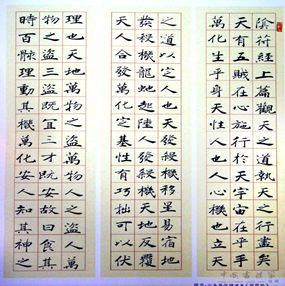 陰符經上篇觀天之道執天之行盡矣
天有五賊在心施行於天宇宙在乎手
萬化生乎身天性人也人心機也立天
之道以定人也天發殺機移星易宿地
發殺機龍蛇起陸人發殺機天地反覆
天人合發萬化定基性有巧拙可以伏
理也天地萬物之盜萬物人之盜人萬
物之盜三盜既宜三才既安故曰食其
時百骸理動其機萬化安人知其神之